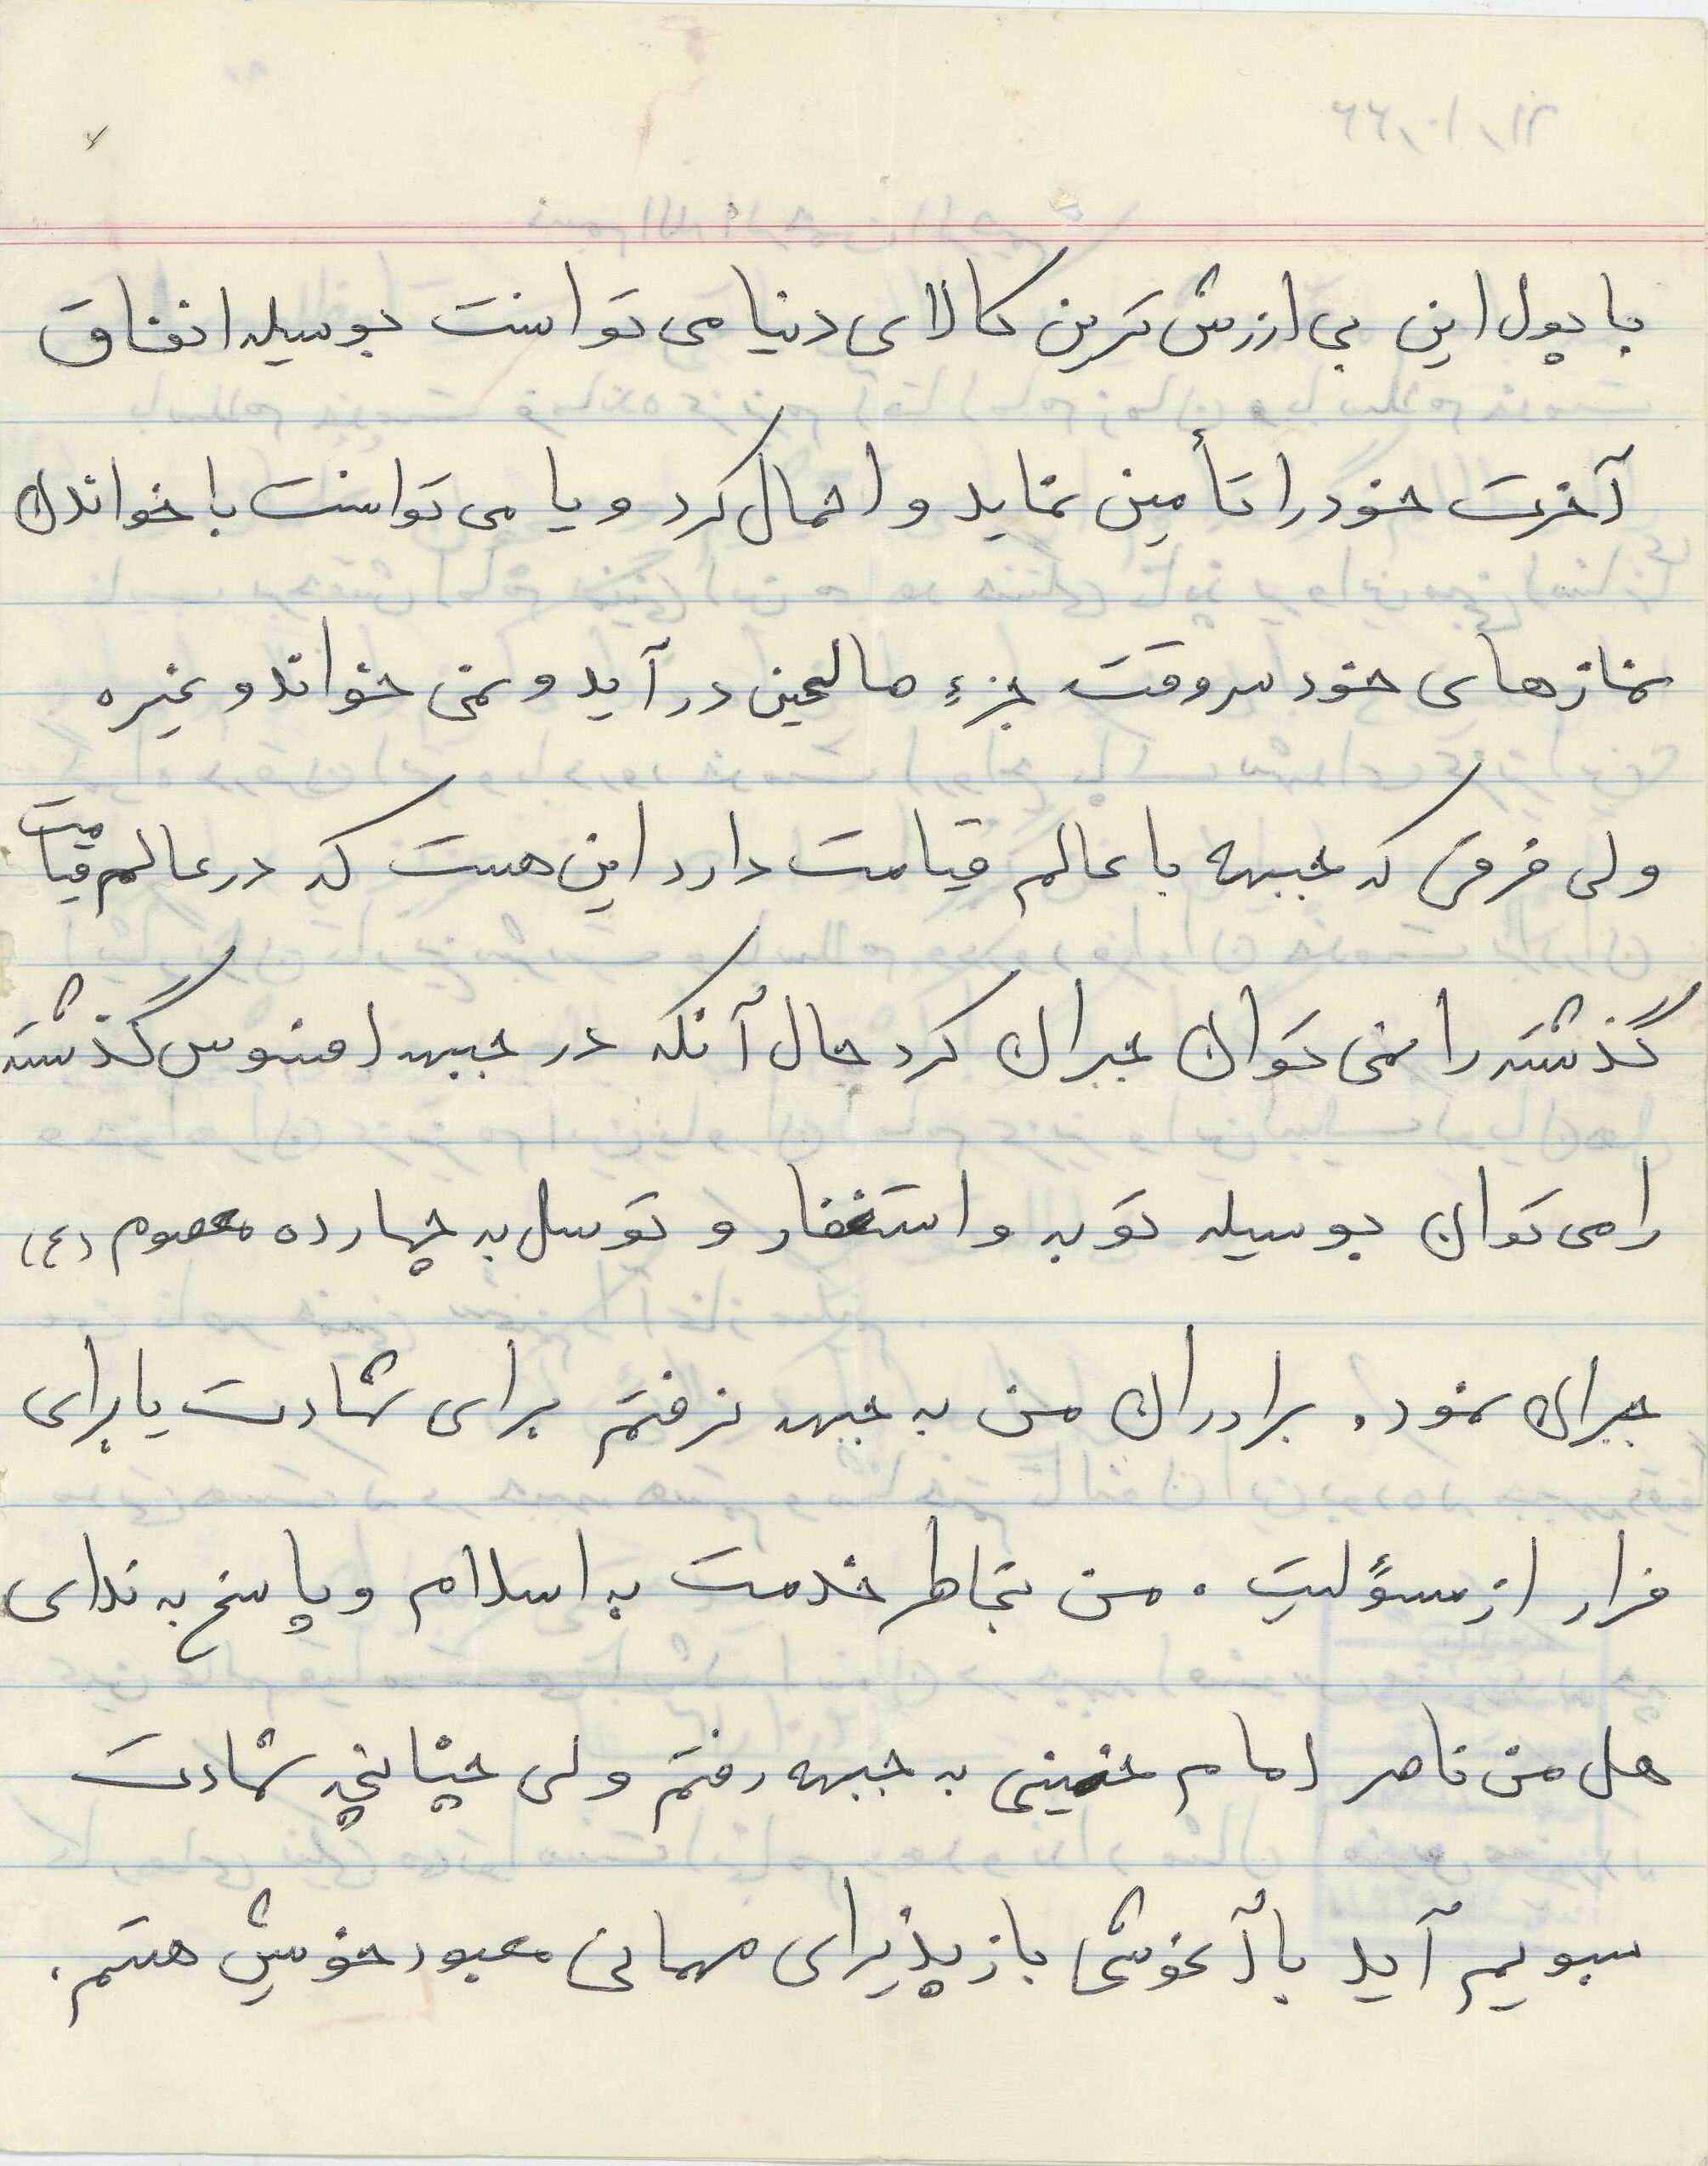 با پول این بی ارزش ترین کالای دنیا می توانست بوسیله انفاق
آخرت خود را تأمین نماید و اهمال کرد و یا می توانست با خواندن
نمازهای خود سر وقت جزء صالحین در آید و نمی خواند و غیره
ولی فرقی که جبهه با عالم قیامت دارد این هست که در عالم قیامت
گذشته را نمی توان جبران کرد حال آنکه در جبهه افسوس گذشته
را می توان بوسیله توبه و استغفار و توسل به چهارده معصوم (ع)
جبران نمود. برادران من به جبهه نرفتم برای شهادت یا برای
فرار از مسؤلیت . من بخاطر خدمت به اسلام و پاسخ به ندای
هل من ناصر امام خمینی به جبهه رفتم ولی چنانچه شهادت
بسویم آید با آغوشی باز پذیرای مهمانی معبود خویش هستم.